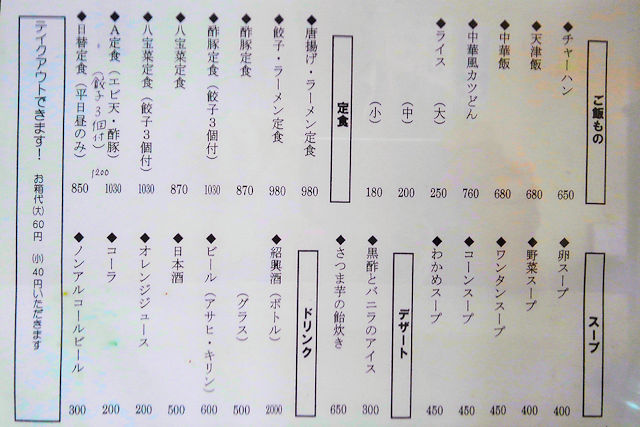 ご飯もの
◆チャーハン 650
◆天津飯 680
◆中華飯 680
◆中華風カツどん 760
◆ライス (大) 250
(中) 200
(小) 180
定食
◆唐揚げ・ラーメン定食 980
◆餃子・ラーメン定食 980
◆酢豚定食 870
◆酢豚定食(餃子3個付) 1030
◆八宝菜定食 870
◆八宝菜定食(餃子3個付) 1030
◆A定食(エビ天・酢豚) 1030
(餃子3個付) 1200
◆日替定食(平日昼のみ) 850
スープ
◆卵スープ 400
◆野菜スープ 400
◆ワンタンスープ 450
◆コーンスープ 450
◆わかめスープ 450
デザート
◆黒酢とバニラのアイス 300
◆さつま芋の飴炊き 650
ドリンク
◆紹興酒(ボトル) 2000
(グラス) 500
◆ビール(アサヒ・キリン) 600
◆日本酒 500
◆オレンジジュース 200
◆コーラ 200
◆ノンアルコールビール 300
テイクアウトできます! お箱代(大)60円 (小)40円いただきます